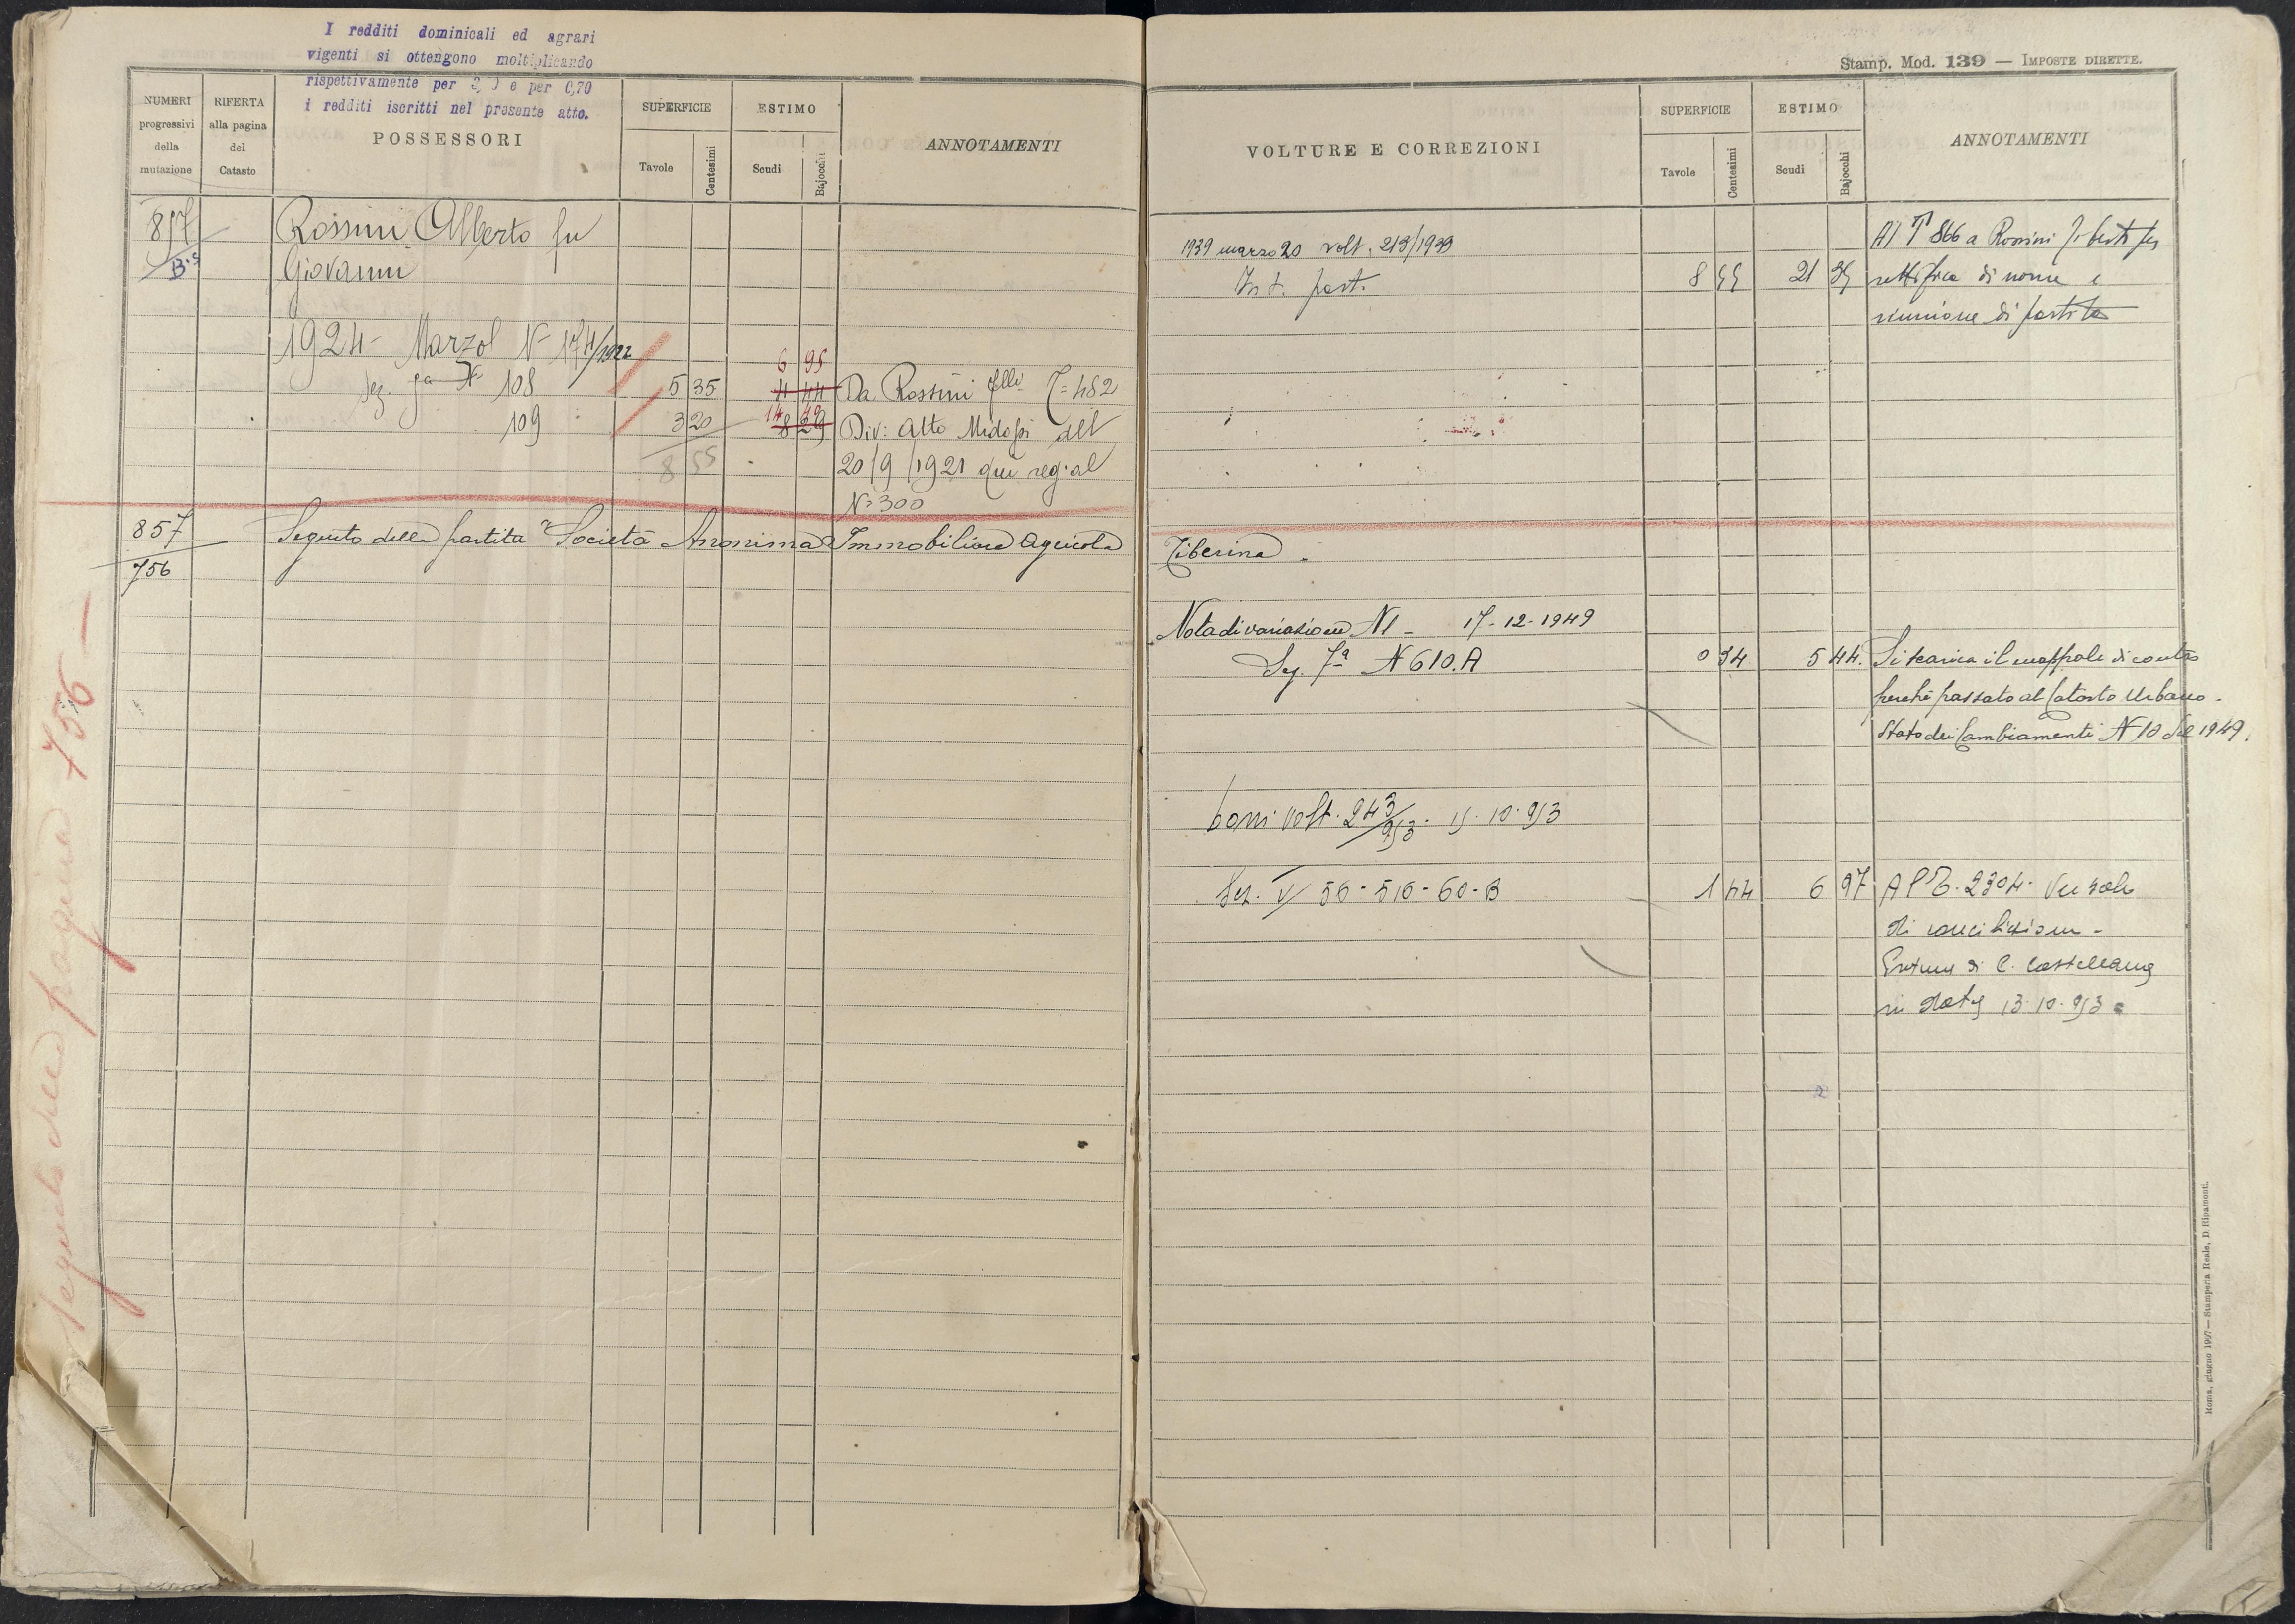 I redditi dominicali ed agrari
vigenti si ottengono moltiplicando
rispettivamente per e per 0,70
i redditi iscritti nel presente atto.
NUMERI progressivi della mutazione
RIFERTA alla pagina del Catasto
POSSESSORI
SUPERFICIE
Tavole
Centesimi
ESTIMO
Scudi
Bajocchi
ANNOTAMENTI
857
Bis
Rossini Alberto fu
Giovanni
1924 - Marzo 1 N 174/1922
6 95
Sez. N 108 5 35 4 44 Da Rossini flli T = 482
109 3 20 14 49 8 29 Div: Atto Midossi del
8 55 20/9/1921 qui reg. al
N° 300
857
756
Seguito della partita "Società Anonima Immobiliare Agricola
Seguito della pagina 756 —
Stamp. Mod. 139 — IMPOSTE DIRETTE.
VOLTURE E CORREZIONI
SUPERFICIE
Tavole
Centesimi
ESTIMO
Scudi
Bajocchi
ANNOTAMENTI
1939 marzo 20 volt. 213/1939
Int. part. 8 55 21 35
Al T 866 a Rossini
rettifica di nome e
riunione di partita
Tiberina.
Nota di variazione N 1 - 17-12-1949
Sez. 7ª N 610.A 0 34 5 44.
Si scarica il mappale di contro
perchè passato al Catasto Urbano.
Stato dei Cambiamenti N 10 del 1949.
volt. 243/953. 15.10.953
Sez. V 56-510-60-B 1 44 6 97
Al T. 2304. Verbale
di conciliazione -
di C. Castellana
in data 13.10.953
Roma, giugno 1907 — Stamperia Reale, D. Ripamonti.